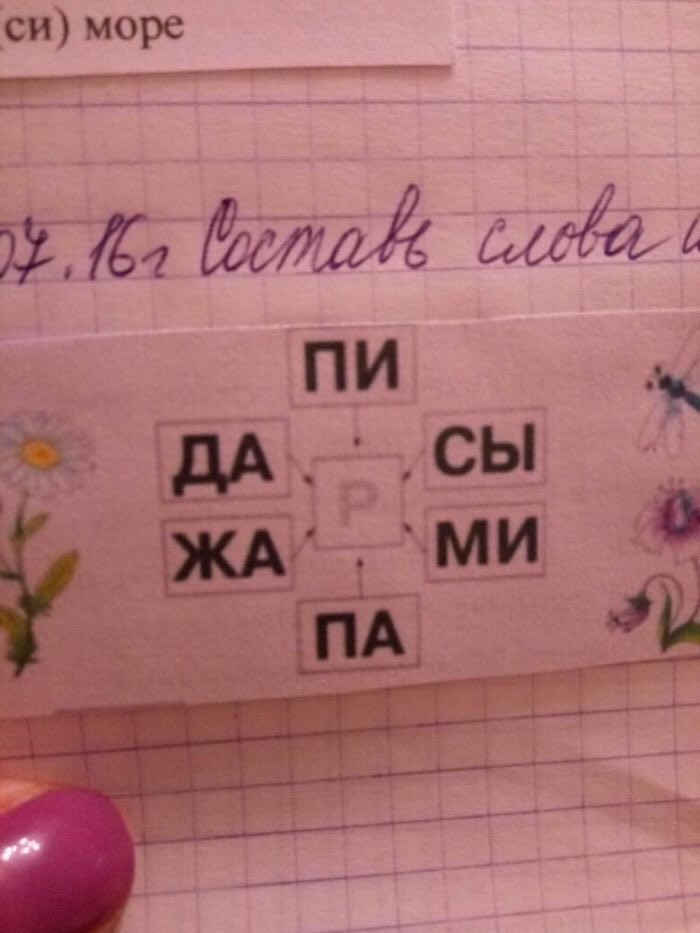 (си) море
07.16г Составь слова
ПИ
ДА
СЫ
Р
ЖА
МИ
ПА